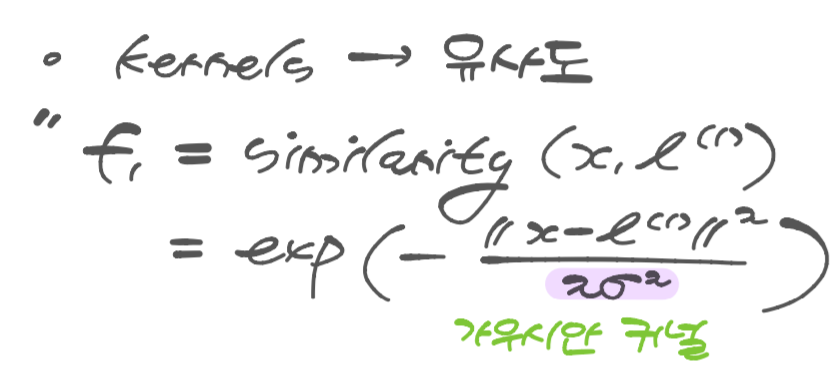 • kernels → 유사도
" f₁ = similarity (x, l⁽¹⁾)
= exp(- ‖x-l⁽¹⁾‖² / 2σ²)
가우시안 커널